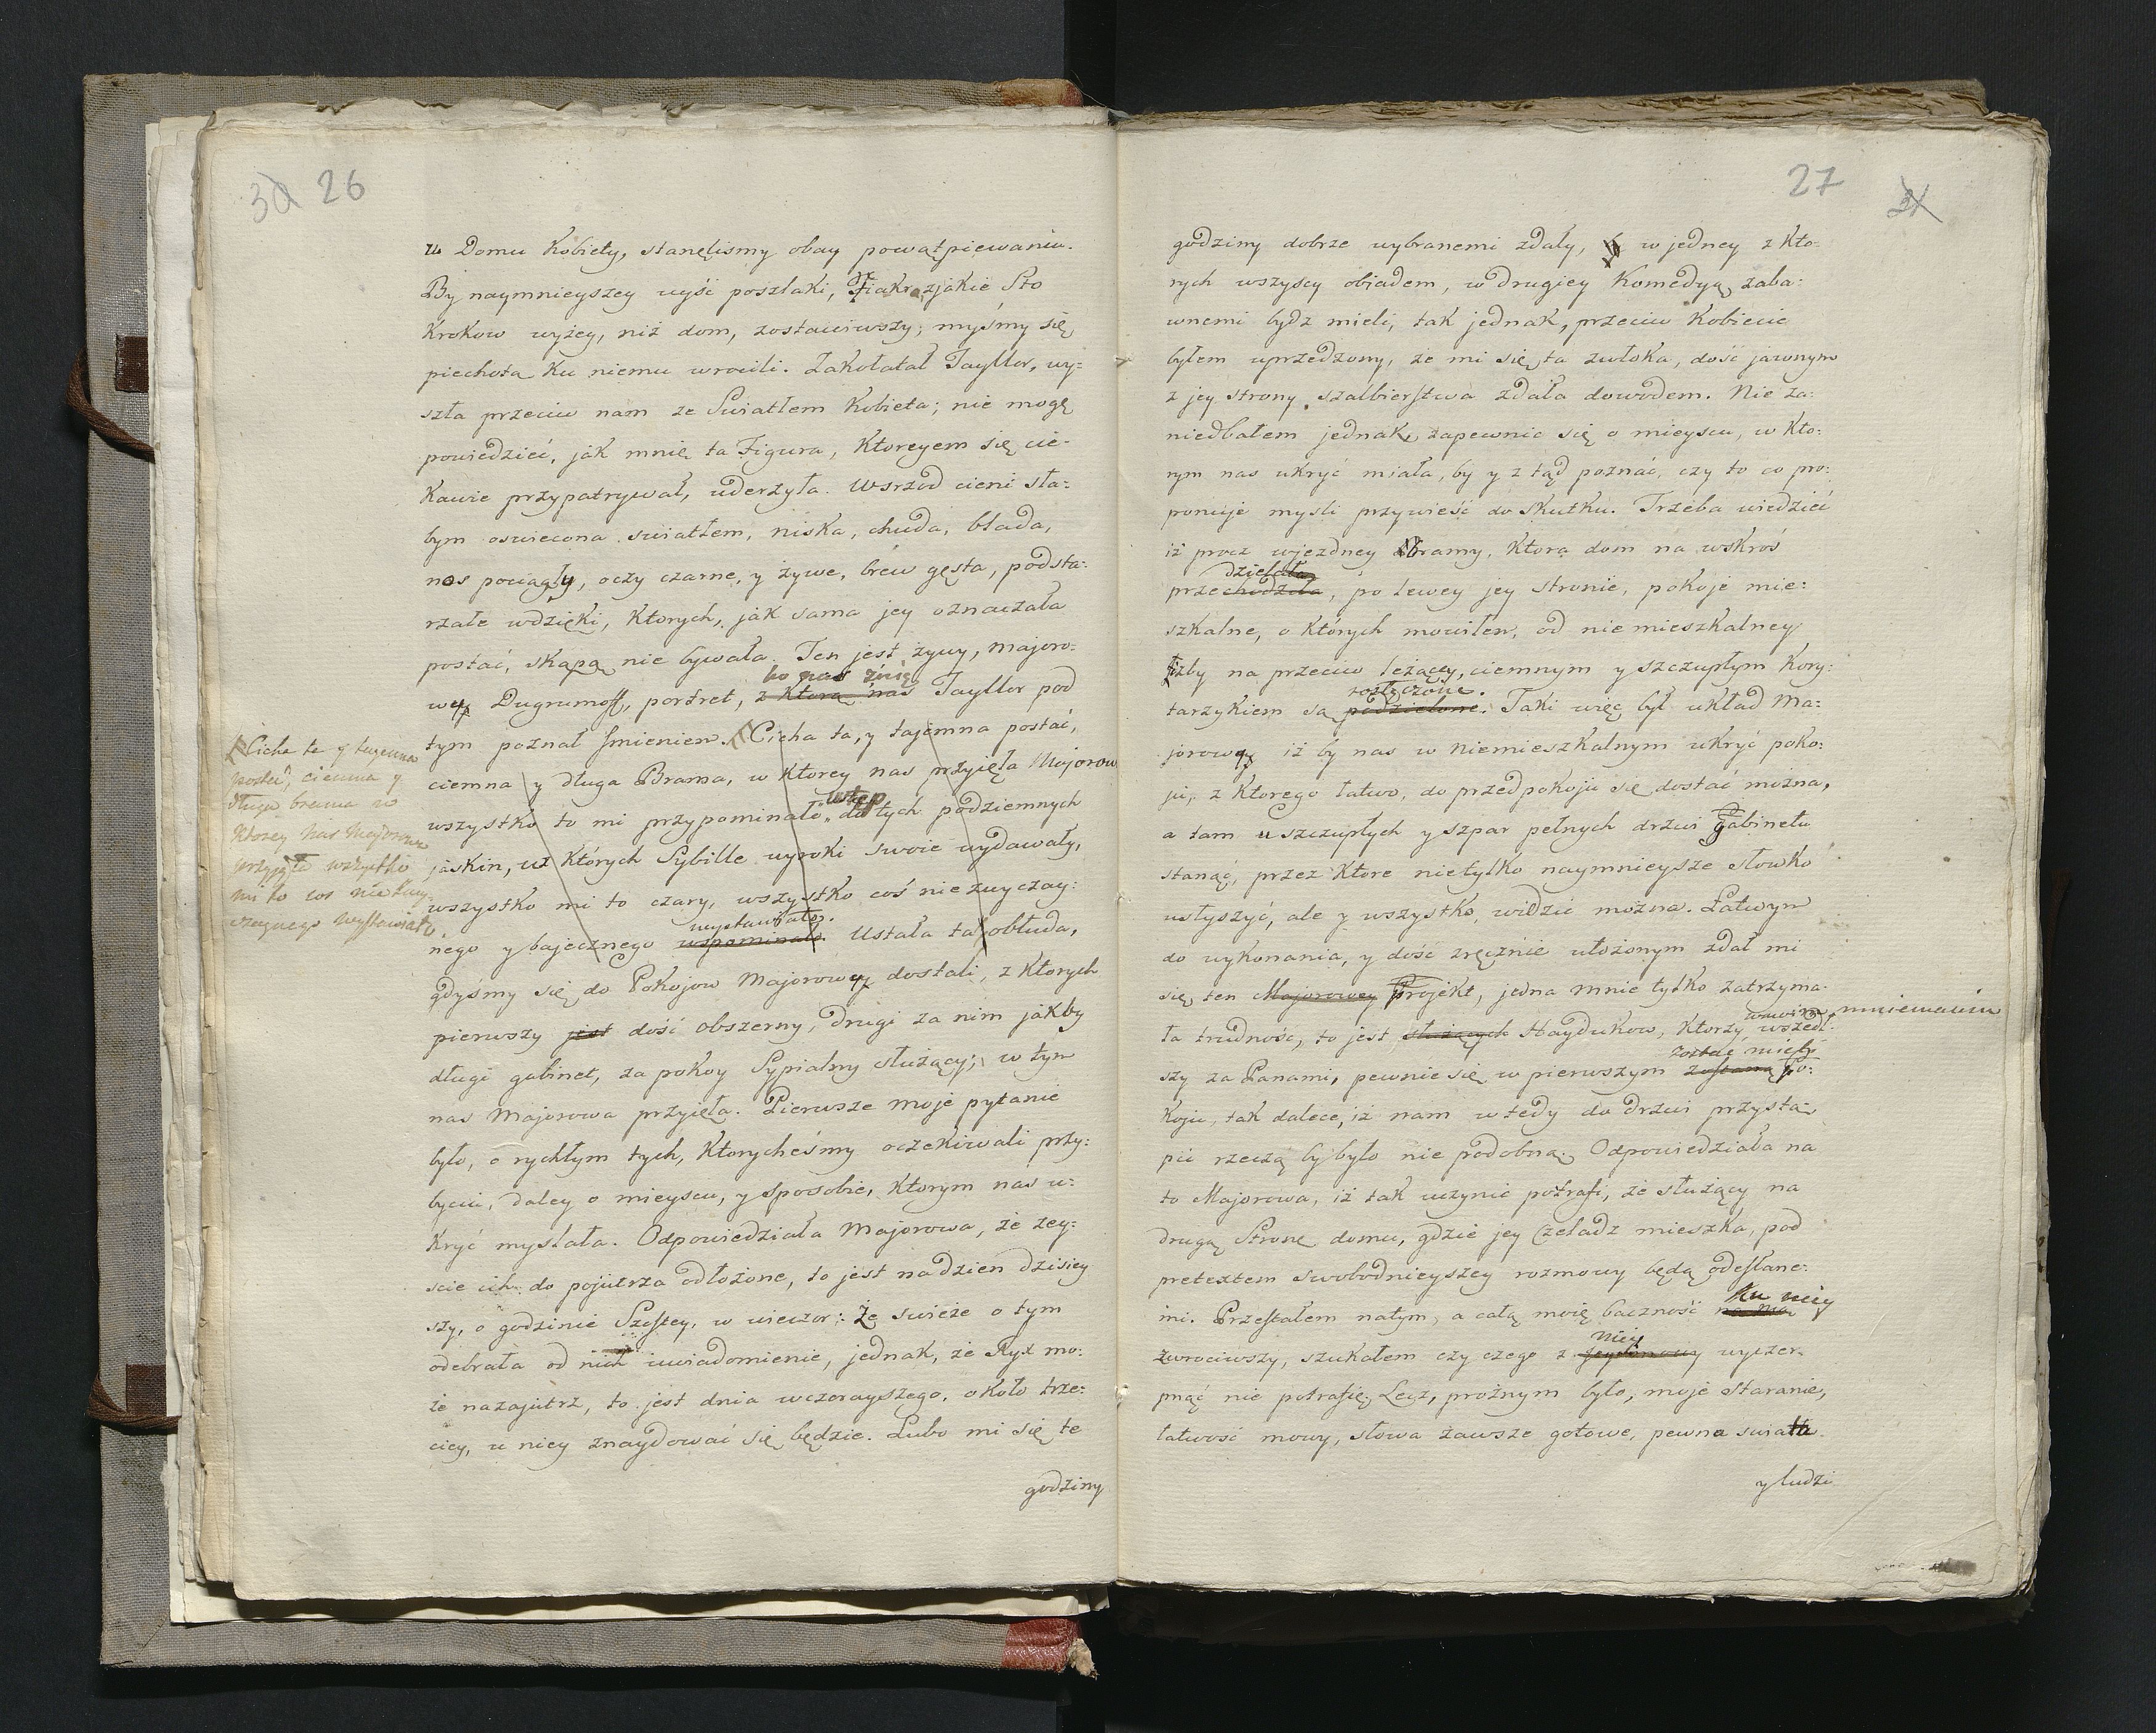 30 26
w Domu Kobiety, stanęlismy obay powątpiewaniu.
By naymnieyszey uyść poszlaki, Fiakra, zjakie Sto
Krokow wyżey, niż dom, zostawiwszy; myśmy się
piechota Ku niemu wrocili. Zakołatał Tayllor, wy=
szła przeciw nam ze Swiatłem Kobieta; nie mogę
powiedzieć, jak mnię ta Figura, Ktoreyem się cie=
Kawie przypatrywał, uderzyła. Wsrzod cieni sła=
bym oswiecona swiatłem, niska, chuda, blada,
nos pociągły, oczy czarne, y żywe, brew gęsta, podsta=
rzałe wdzięki, Ktorych, jak sama jey oznaczała
postać, skąpą nie bywała. Ten jest żywy, majoro=
bo nas
wey Dugrumoff, portret, z Ktorą nas Tayllor pod
tym poznał Jmieniem. Cicha ta, y tajemna postać,
ciemna y długa Brama, w Ktorey nas przyięła Majorow
wstęp
wszystko to mi przypominało do tych podziemnych
jaskin, w Których Sybille wyroki swoie wydawały,
wszystko mi to czary, wszystko coś niezwyczay=
wystawiało.
nego y bajecznego wspominało. Ustała ta obłuda,
gdyśmy się do Pokojow Majorowey dostali, z Ktorych
pierwszy jest dość obszerny, drugi za nim jakby
długi gabinet, za pokoy Sypialny służący; w tym
nas Majorowa przyięła. Pierwsze moje pytanie
było, o rychłym tych, Ktorycheśmy oczekiwali przy=
byciu, daley o mieyscu, y sposobie, Ktorym nas u=
kryć myslała. Odpowiedziała Majorowa, że zey=
scie ich do pojutrza odłożone, to jest na dzien dzisiey
szy, o godzinie Szostey, w wieczor: Że swieże o tym
odebrała od nich uwiadomienie, jednak, że Ryx mo=
że nazajutrz, to jest dnia wczorayszego, około trze=
ciey, u niey znaydować się będzie. Lubo mi się te
godziny
Cicha ta y tajemna
postać, ciemna y
długa brama w
Ktorey nas Majorowa
przyjęła wszystko
mi to cos niezwy=
czaynego wystawiało
27 31
godziny dobrze wybranemi zdały, w jedney z Kto=
rych wszyscy obiadem, w drugiey Komedyą, zaba=
wnemi bydz mieli, tak jednak, przeciw Kobiecie
byłem uprzedzony, że mi się ta zwłoka, dość jawnym
z jey strony szalbierstwa zdała dowodem. Nie za=
niedbałem jednak, zapewnic się o mieyscu, w Kto=
rym nas ukryć miała, by y z tąd poznać, czy to co pro=
ponuje mysli przywieść do Skutku. Trzeba wiedzieć
iż procz wjezdney Bramy, Ktora dom na wskroś
dzielała
przechodziła, po lewey jey stronie, pokoje mie=
szkalne, o Których mowiłem, od nie mieszkalney
izby na przeciw leżącey, ciemnym y szczupłym Kory=
rozłączone.
tarzykiem są podzielone. Taki więc był układ Ma=
jorowey iż by nas w niemieszkalnym ukryć poko=
ju, z Ktorego łatwo, do przedpokoju się dostać można,
a tam u szczupłych y szpar pełnych drzwi gabinetu
stanąć, przez Ktore nietylko naymnieysze słowko
usłyszyć, ale y wszystko, widzieć można. Łatwym
do wykonania, y dość zręcznie ułożonym zdał mi
się ten Majorowey Projekt, jedna mnie tylko zatrzyma=
mniemaniu
ła trudność, to jest służących Haydukow, Ktorzy wszedł=
zostać mieli
szy za Panami, pewnie się w pierwszym zostaną po=
Koju, tak dalece, iż nam wtedy do drzwi przystą=
pić rzeczą by było nie podobną. Odpowiedziała na
to Majorowa, iż tak uczynic potrafi, że służący na
drugą Stronę domu, gdzie jey Czeladz mieszka, pod
pretextem swobodnieyszey rozmowy będą odesłane=
ku niey
mi. Przestałem natym, a całą moię baczność na nią
niey
zwrociwszy, szukałem czy czego z wyczer=
pnąć nie potrafię, Lecz, prożnym było, moje Staranie,
łatwość mowy, słowa zawsze gotowe, pewna swiata
y ludzi